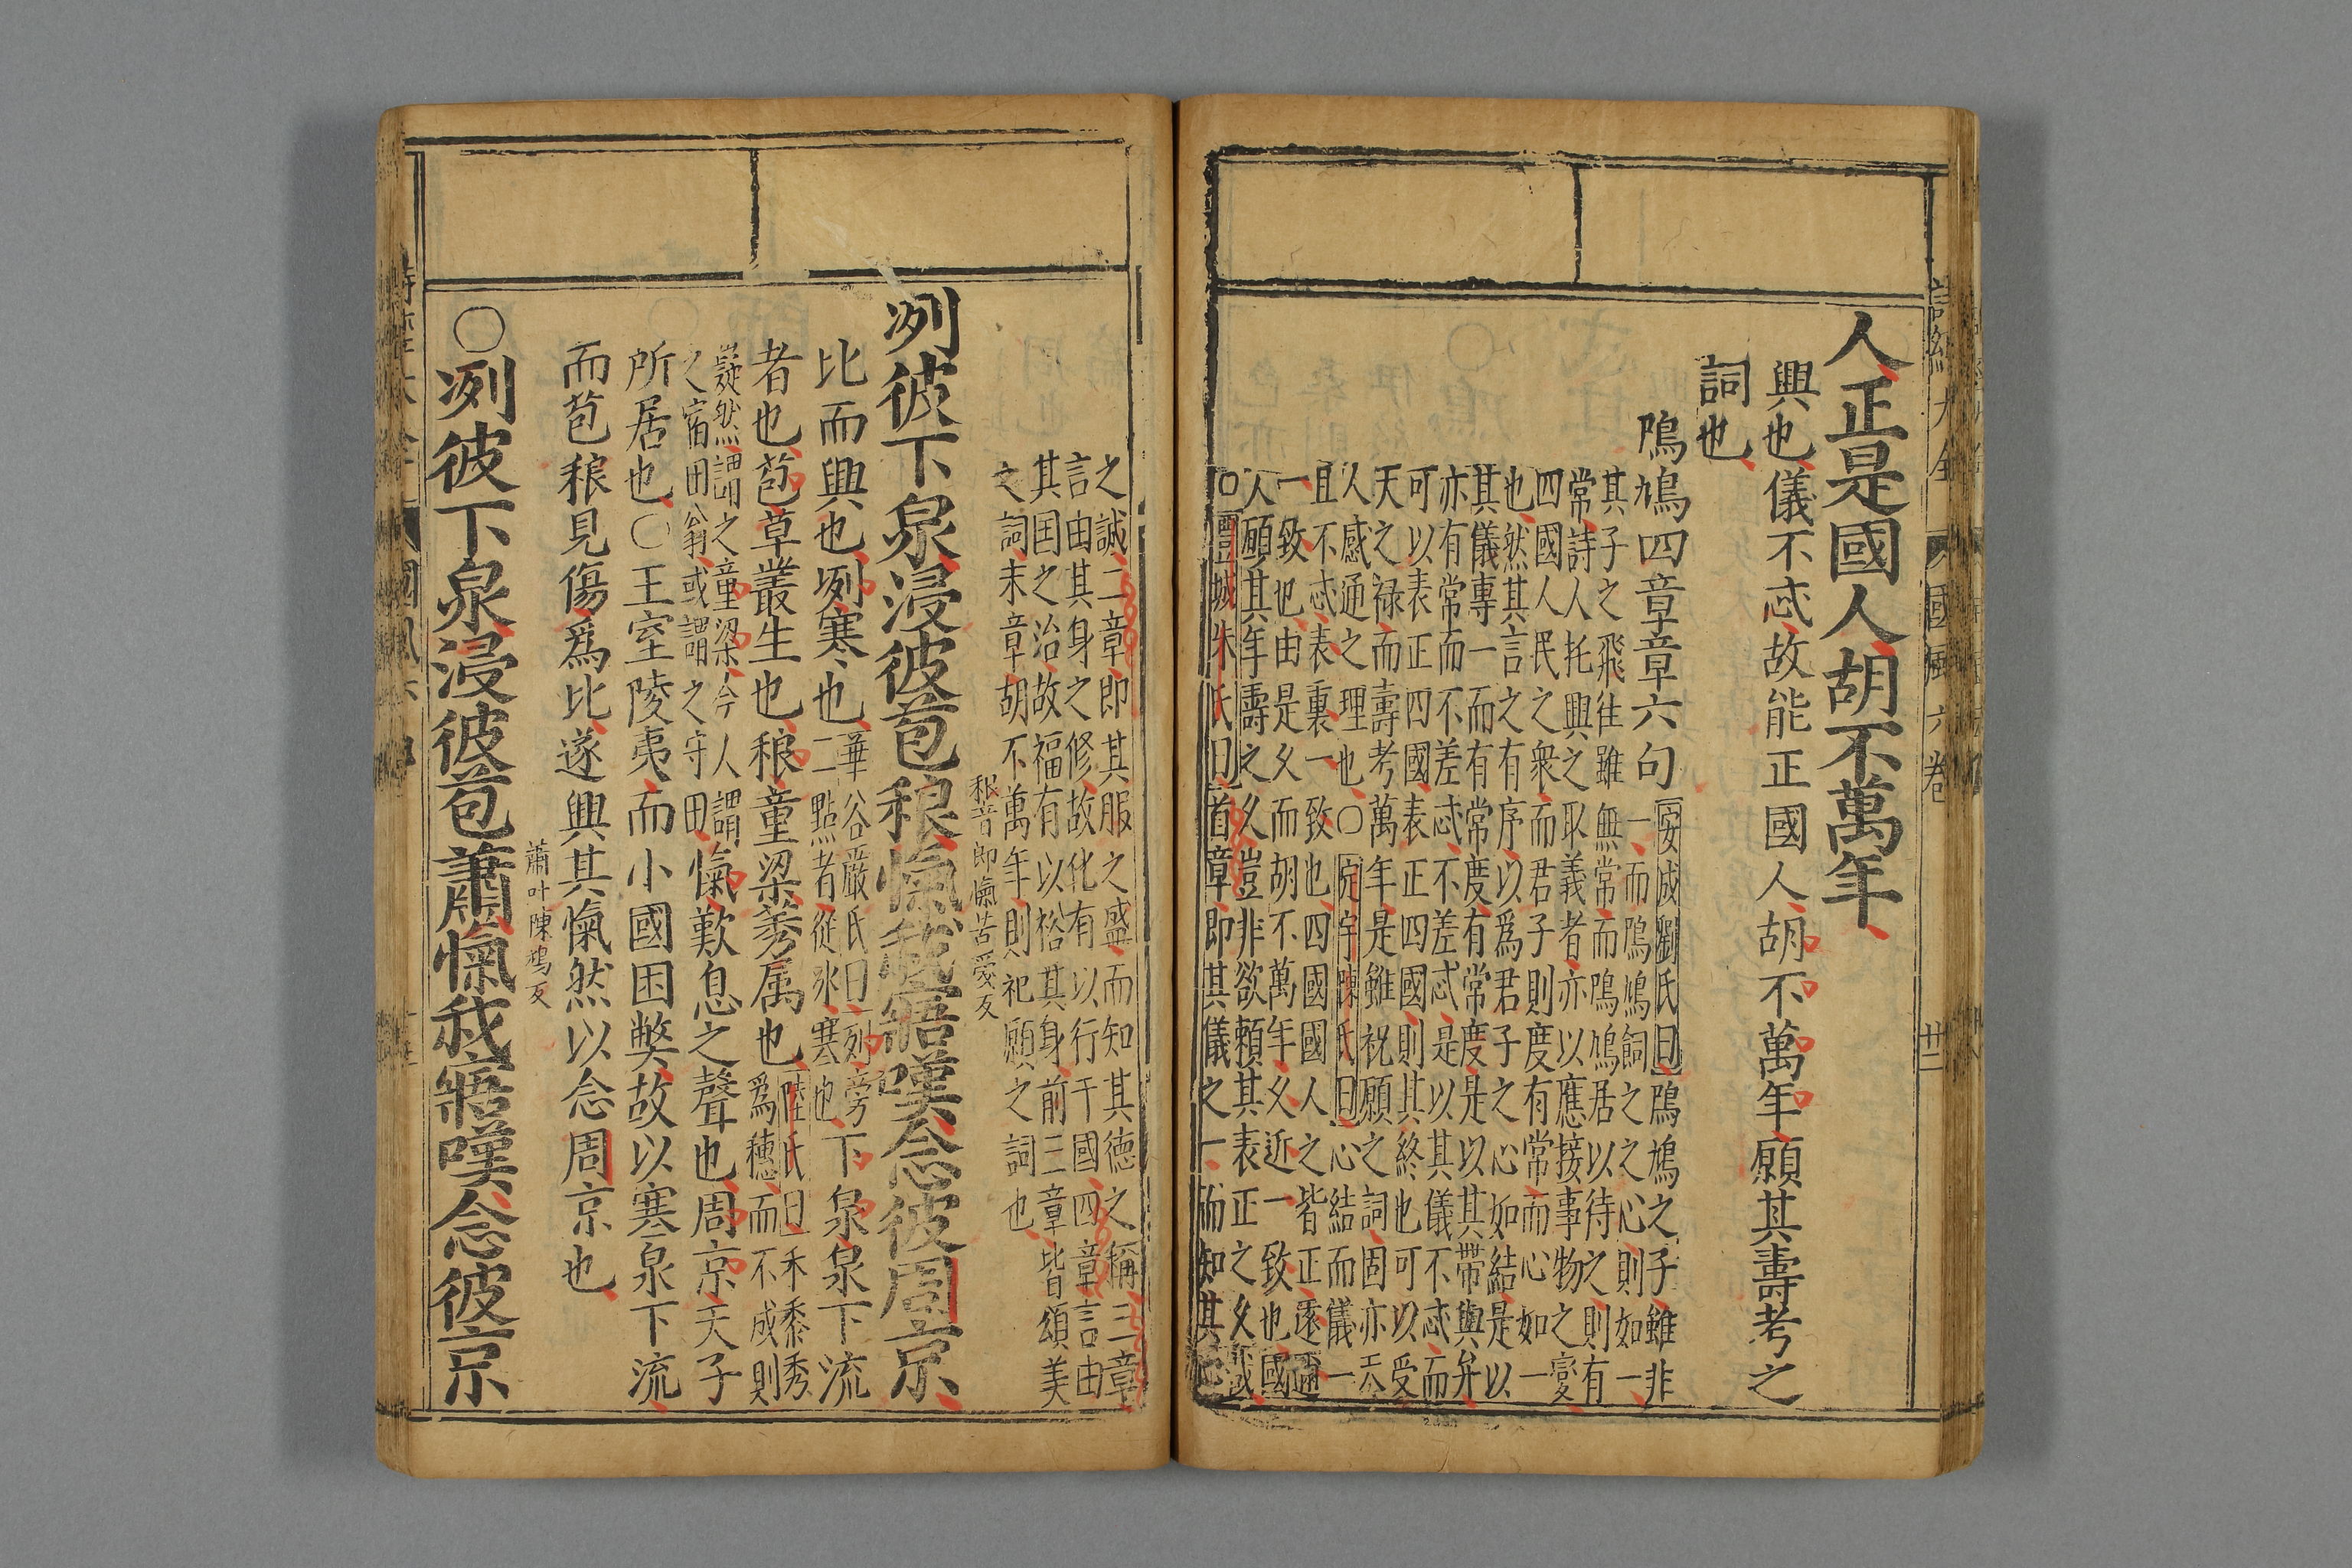 人正是國人胡不萬年
興也儀不忒故能正國人胡不萬年願其壽考之
詞也
鳲鳩四章章六句
安成劉氏曰鳲鳩之子雖非
一而鳲鳩飼之之心則如一
其子之飛往雖無常而鳲鳩居以待之則有
常詩人托興之取義者亦以應接事物之變
四國人民之衆而君子則度有常而心如一
也然其言之有序以爲君子之心如結是以
其儀專一而有常度有常度是以其帶與弁
亦有常而不差忒不差忒是以其儀不忒而
可以表正四國表正四國則其終也可以受
天之祿而壽考萬年是雖祝願之詞固亦天
人感通之理也○
陳氏曰心結而儀一
且不忒表裏一致也四國國人之皆正遠邇
一致也由是久而胡不萬年久近一致也國
人願其年壽之久豈非欲賴其表正之久哉
○豐城朱氏曰首章即其儀之一而知其心
之誠二章即其服之盛而知其德之稱三章
言由其身之修故化有以行于國四章言由
其囯之治故福有以裕其身前三章皆頌美
之詞末章胡不萬年則祀願之詞也
稂音郎愾苦愛反
冽彼下泉浸彼苞稂愾我寤嘆念彼周京
比而興也冽寒也
華谷嚴氏曰列旁
二點者從冰寒也
下泉泉下流
者也苞草叢生也稂童粱莠属也
陸氏曰禾黍秀
爲穗而不成則
嶷然謂之童粱今人謂
之宿田翁或謂之守田
愾歎息之聲也周京天子
所居也○王室陵夷而小國困弊故以寒泉下流
而苞稂見傷爲比遂興其愾然以念周京也
蕭叶陳鳩反
○冽彼下泉浸彼苞蕭愾我寤嘆念彼京